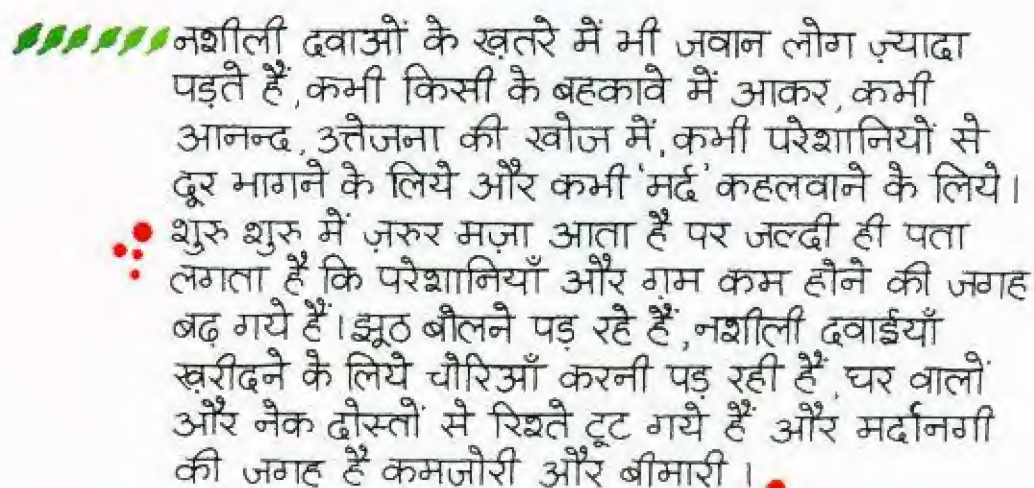 नशीली दवाओं के ख़तरे में भी जवान लोग ज़्यादा
पड़ते हैं, कभी किसी के बहकावे में आकर, कभी
आनन्द, उत्तेजना की खोज में, कभी परेशानियों से
दूर भागने के लिये और कभी 'मर्द' कहलवाने के लिये।
शुरु शुरु में ज़रुर मज़ा आता है पर जल्दी ही पता
लगता है कि परेशानियाँ और ग़म कम होने की जगह
बढ़ गये हैं। झूठ बोलने पड़ रहे हैं, नशीली दवाईयाँ
ख़रीदने के लिये चोरिआँ करनी पड़ रही हैं, घर वालों
और नेक दोस्तों से रिश्ते टूट गये हैं और मर्दानगी
की जगह है कमजोरी और बीमारी।